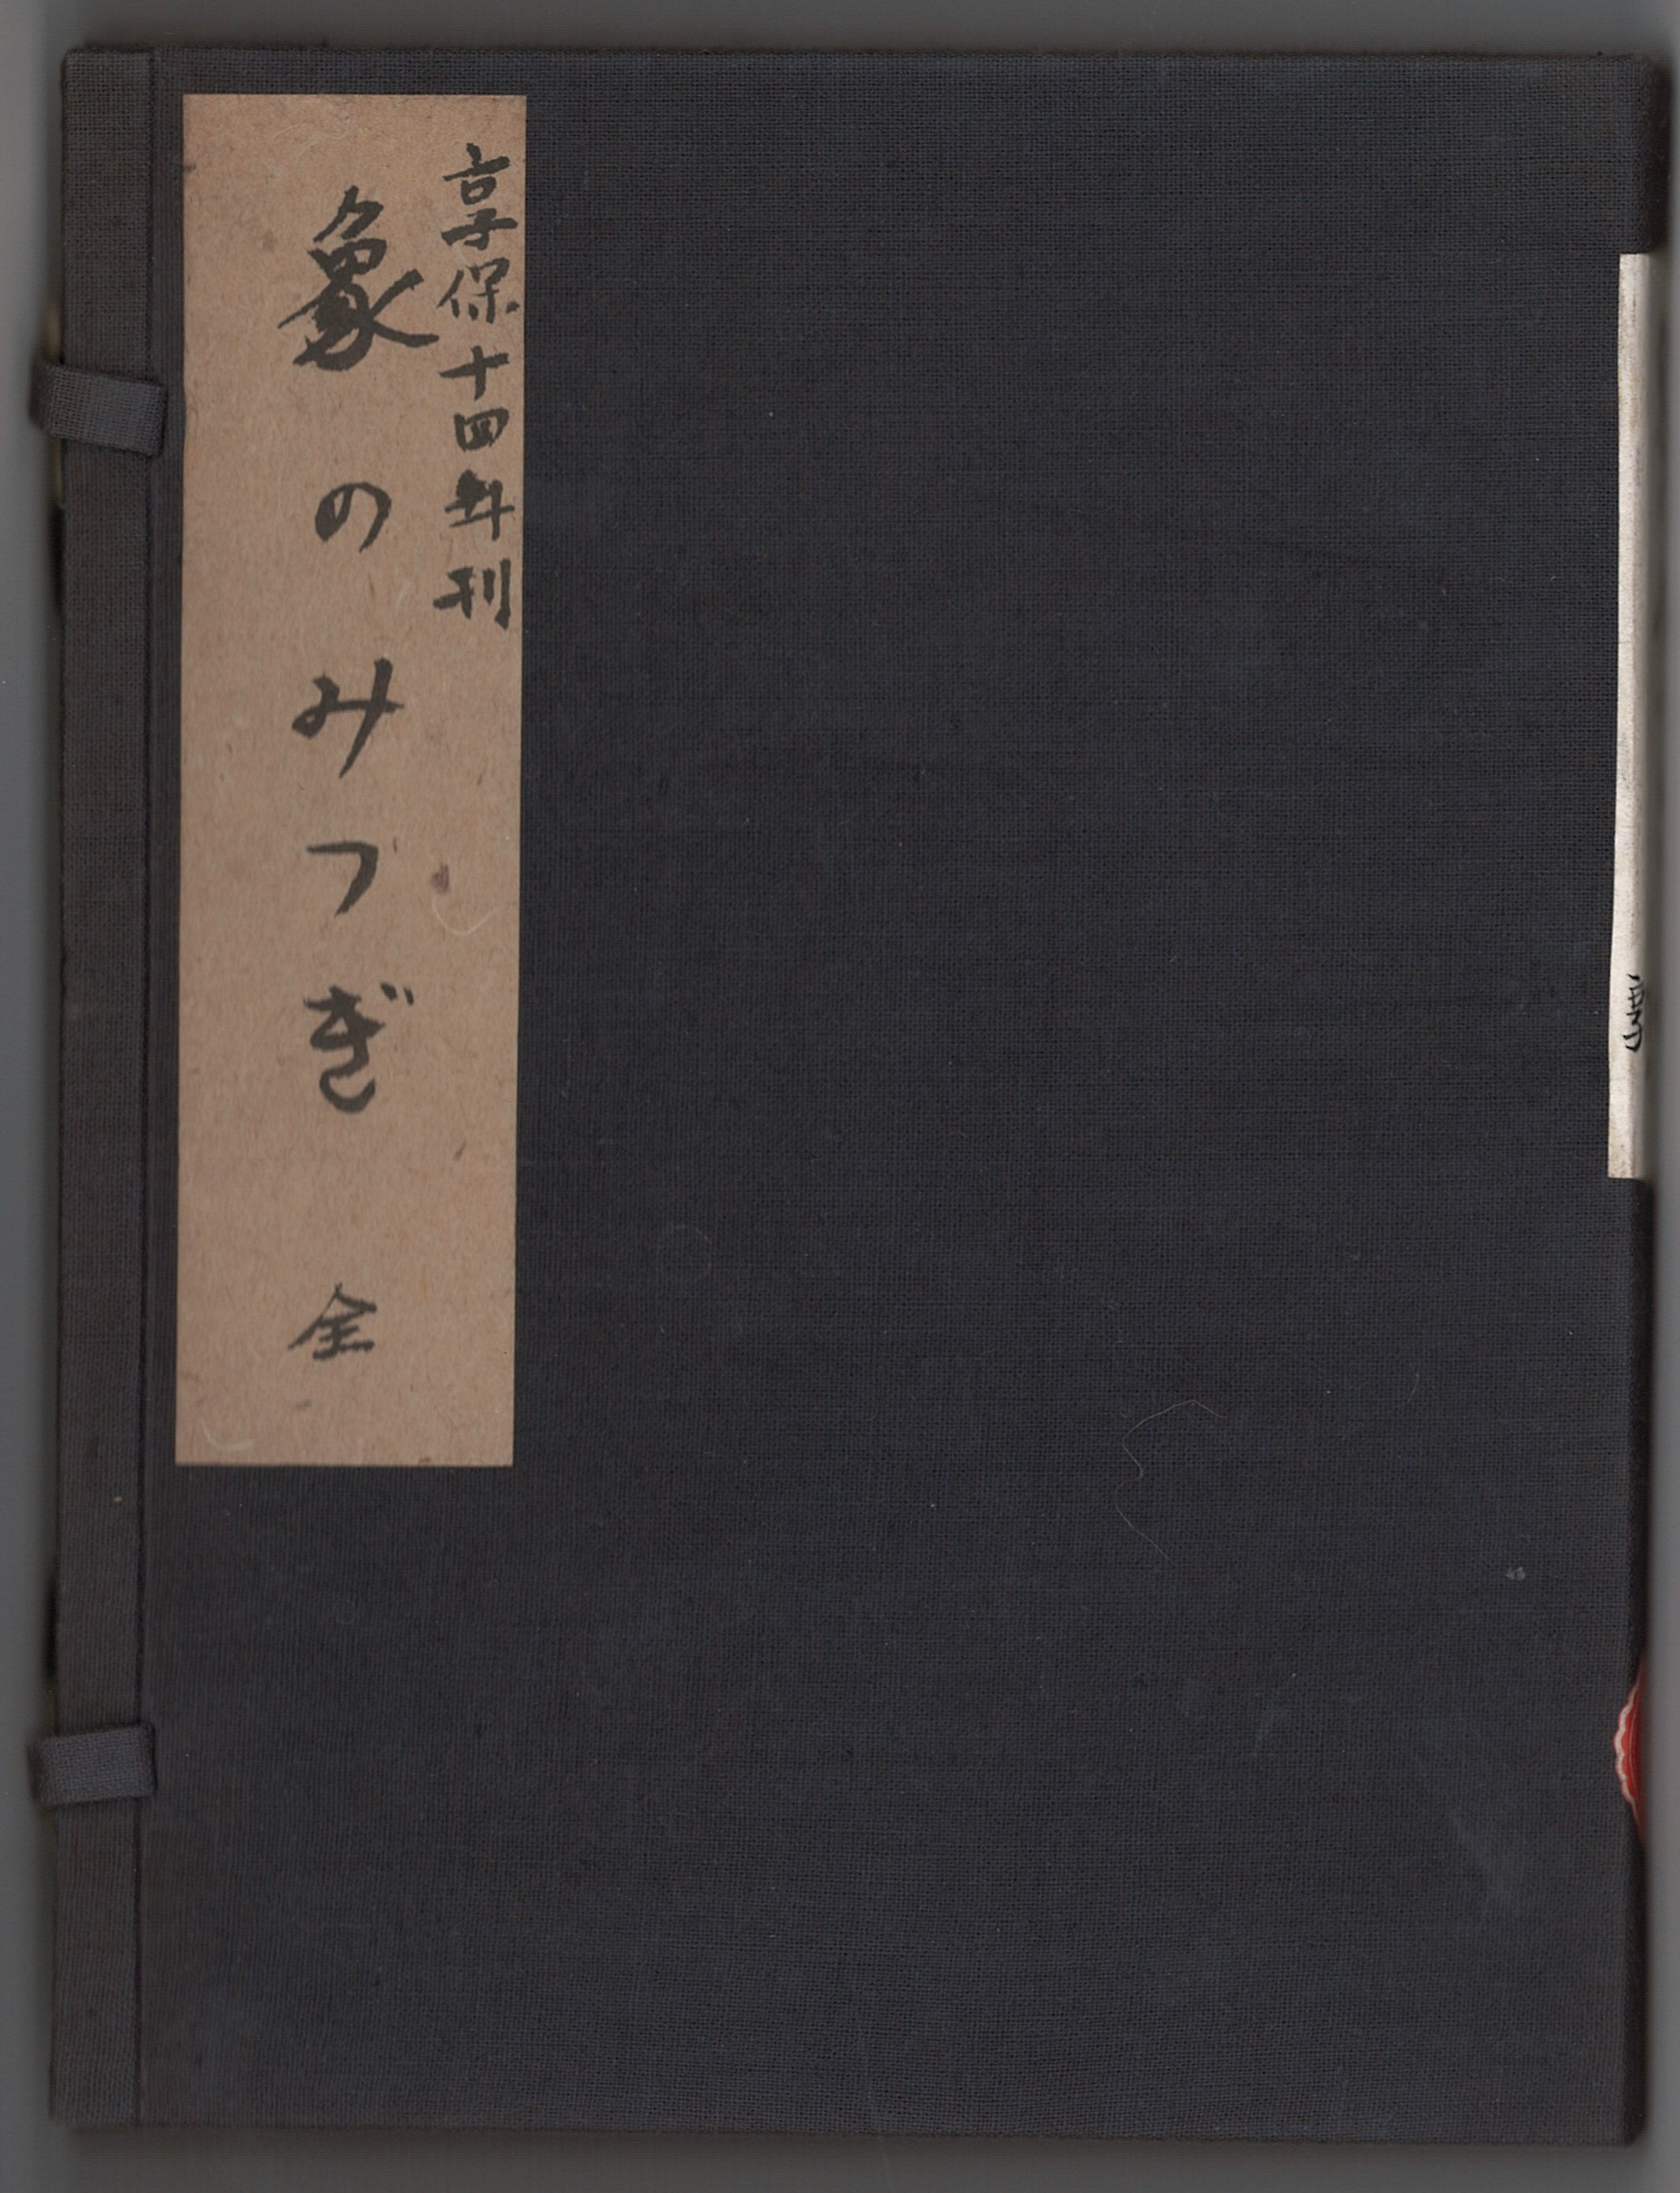 享保十四年刊
象のみつぎ 全